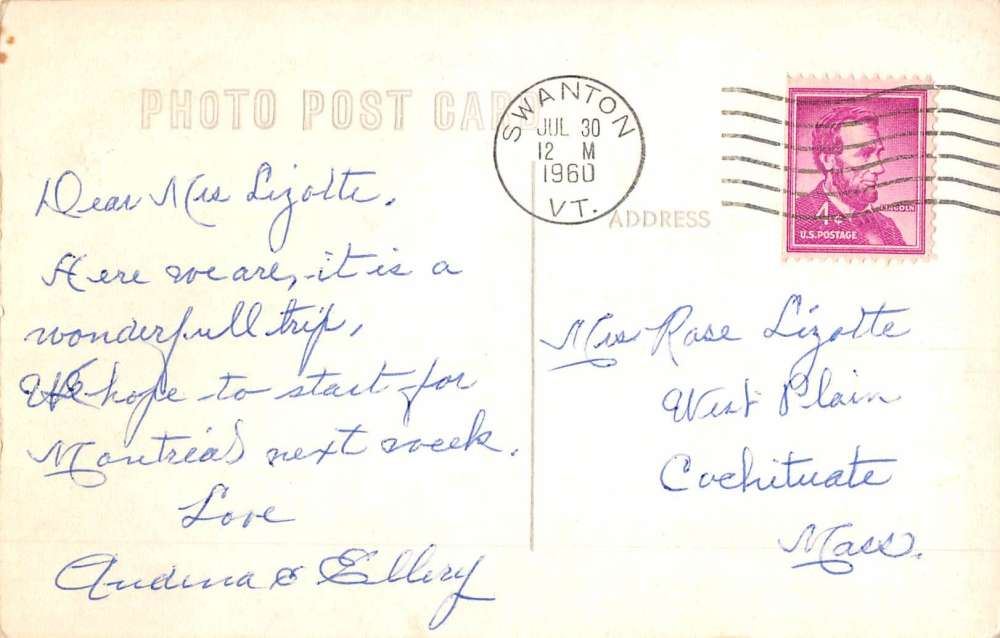 PHOTO POST CARD
SWANTON
JUL 30
12 M
1960
VT.
ADDRESS
LINCOLN
4¢
U.S. POSTAGE
Dear Mrs Lizotte.
Here we are, it is a
wonderfull trip,
We hope to start for
Montréal next week.
Love
& Ellery
Mrs Rose Lizotte
West Plain
Cochituate
Mass.